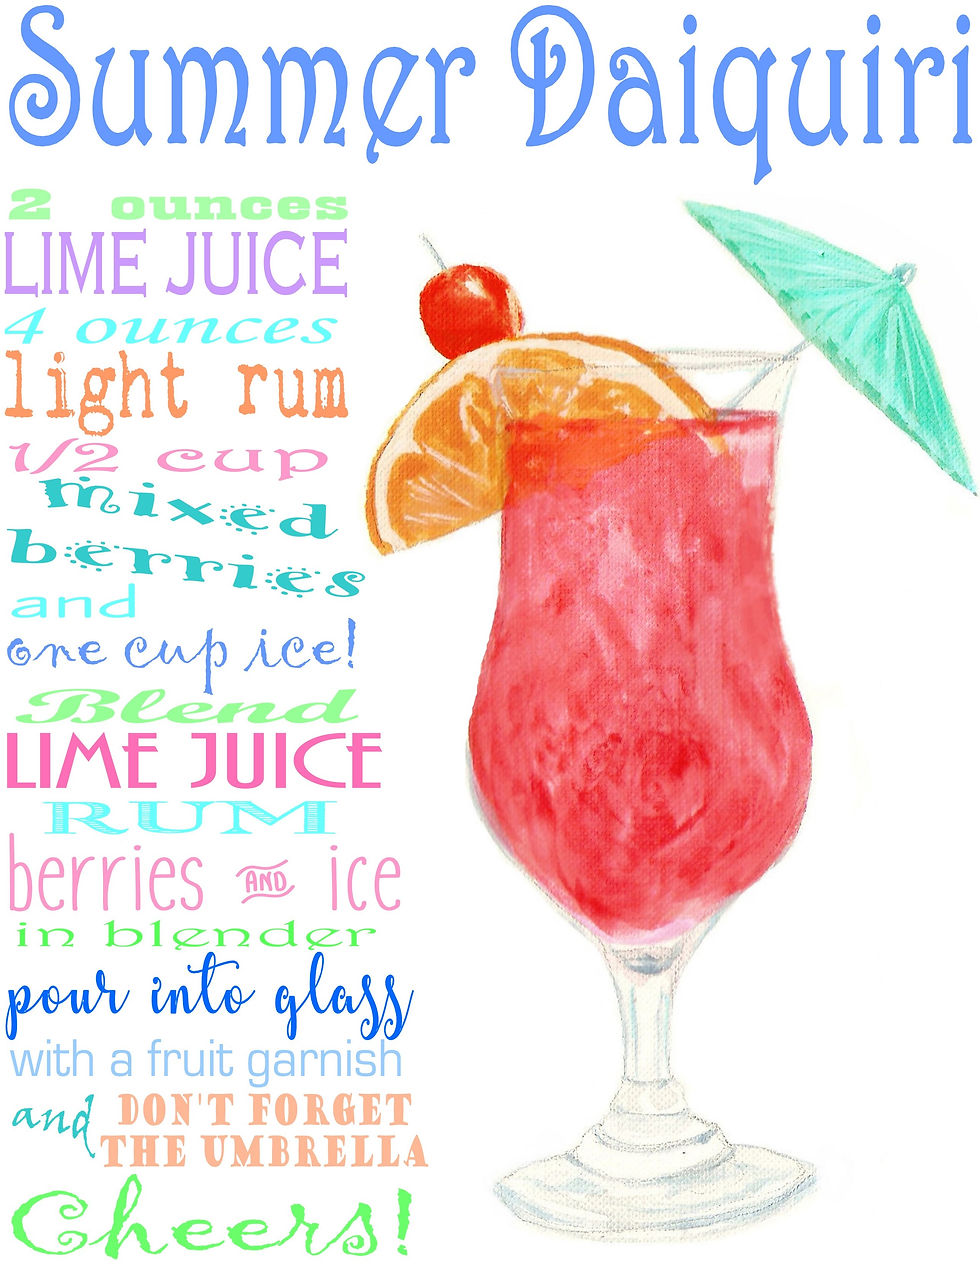 Summer Daiquiri
2 ounces
LIME JUICE
4 ounces
light rum
1/2 cup
mixed
berries
and
one cup ice!
Blend
LIME JUICE
RUM
berries AND ice
in blender
pour into glass
with a fruit garnish
and DON'T FORGET
THE UMBRELLA
Cheers!